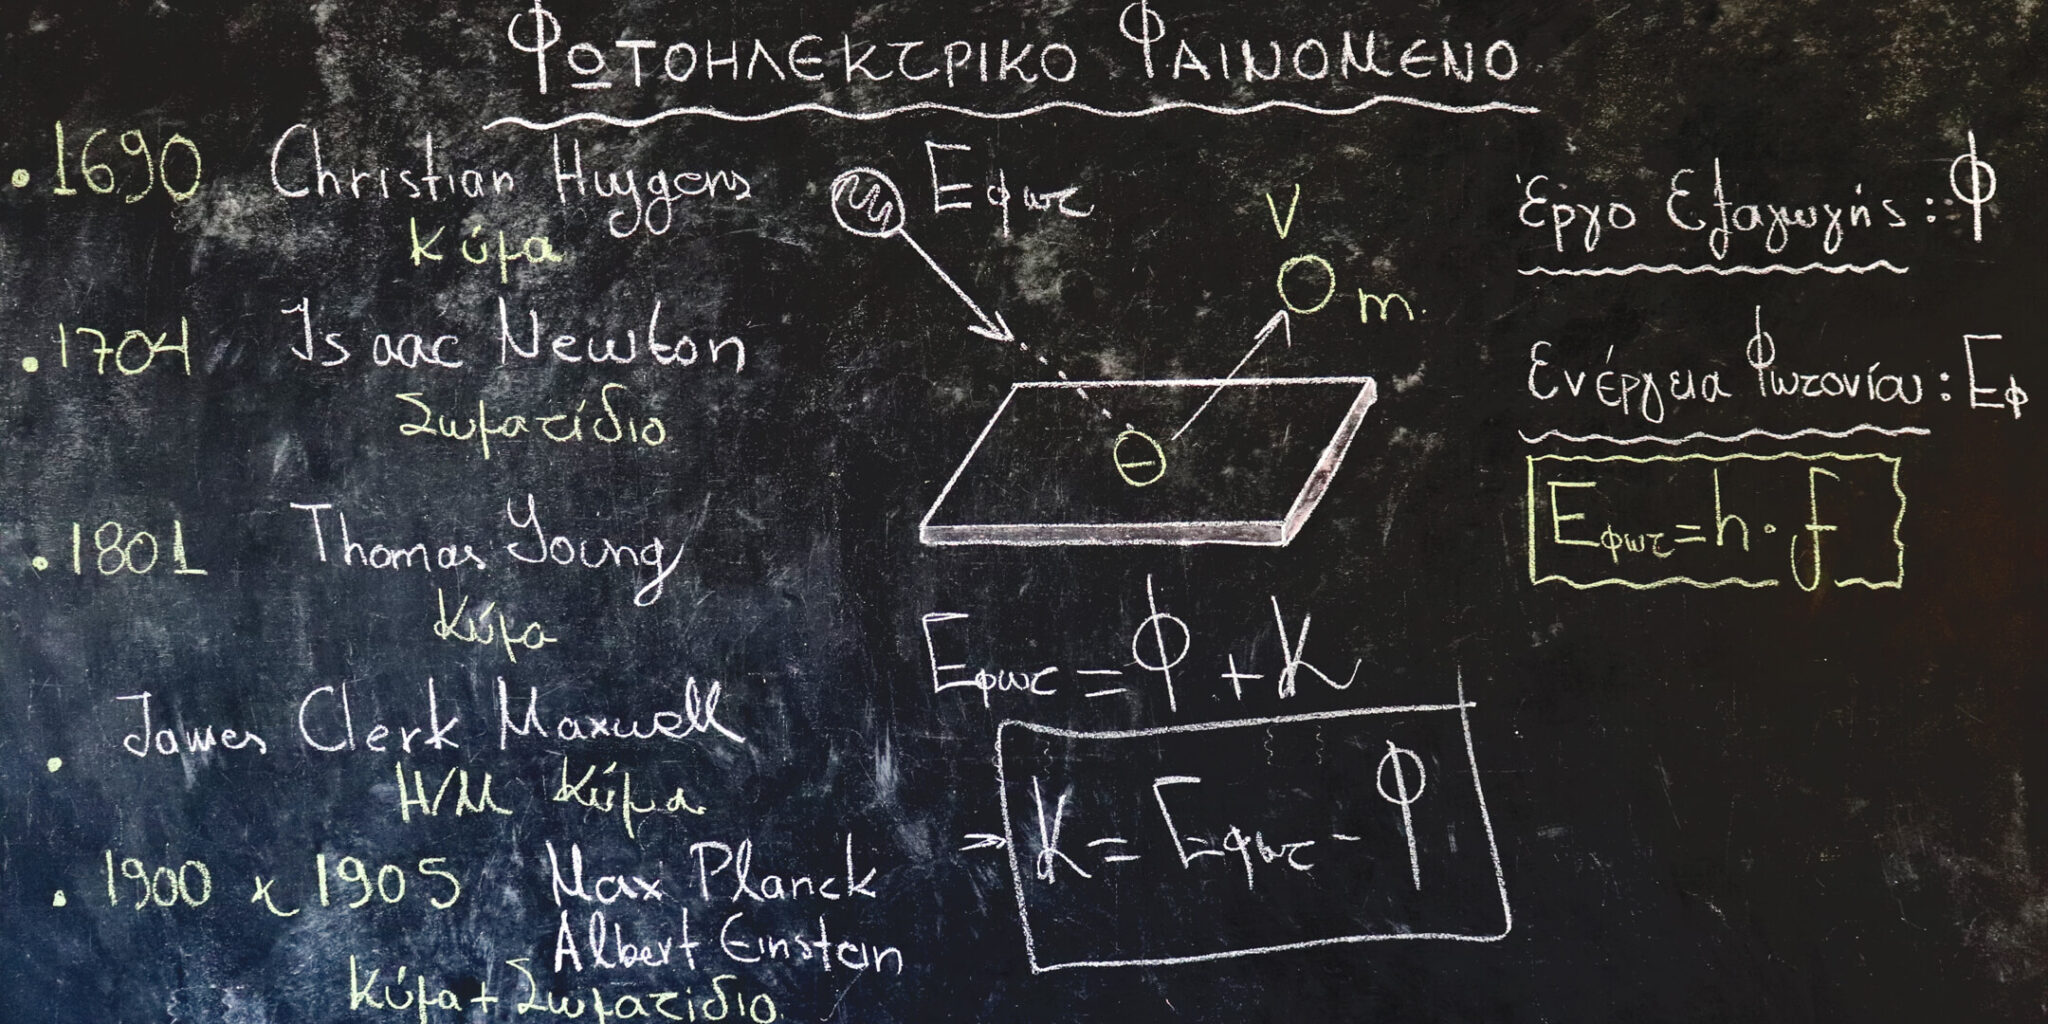 ΦΩΤΟΗΛΕΚΤΡΙΚΟ ΦΑΙΝΟΜΕΝΟ
• 1690 Christian Huygens
Κύμα
• 1704 Isaac Newton
Σωματίδιο
• 1801 Thomas Young
Κύμα
• James Clerk Maxwell
Η/Μ Κύμα
• 1900 κ 1905 Max Planck
Albert Einstein
Κύμα + Σωματίδιο
Eφωτ
V
m.
Θ
Eφωτ = Φ + K
→ K = Eφωτ - Φ
Έργο Εξαγωγής: Φ
Ενέργεια Φωτονίου: EΦ
Eφωτ = h · f